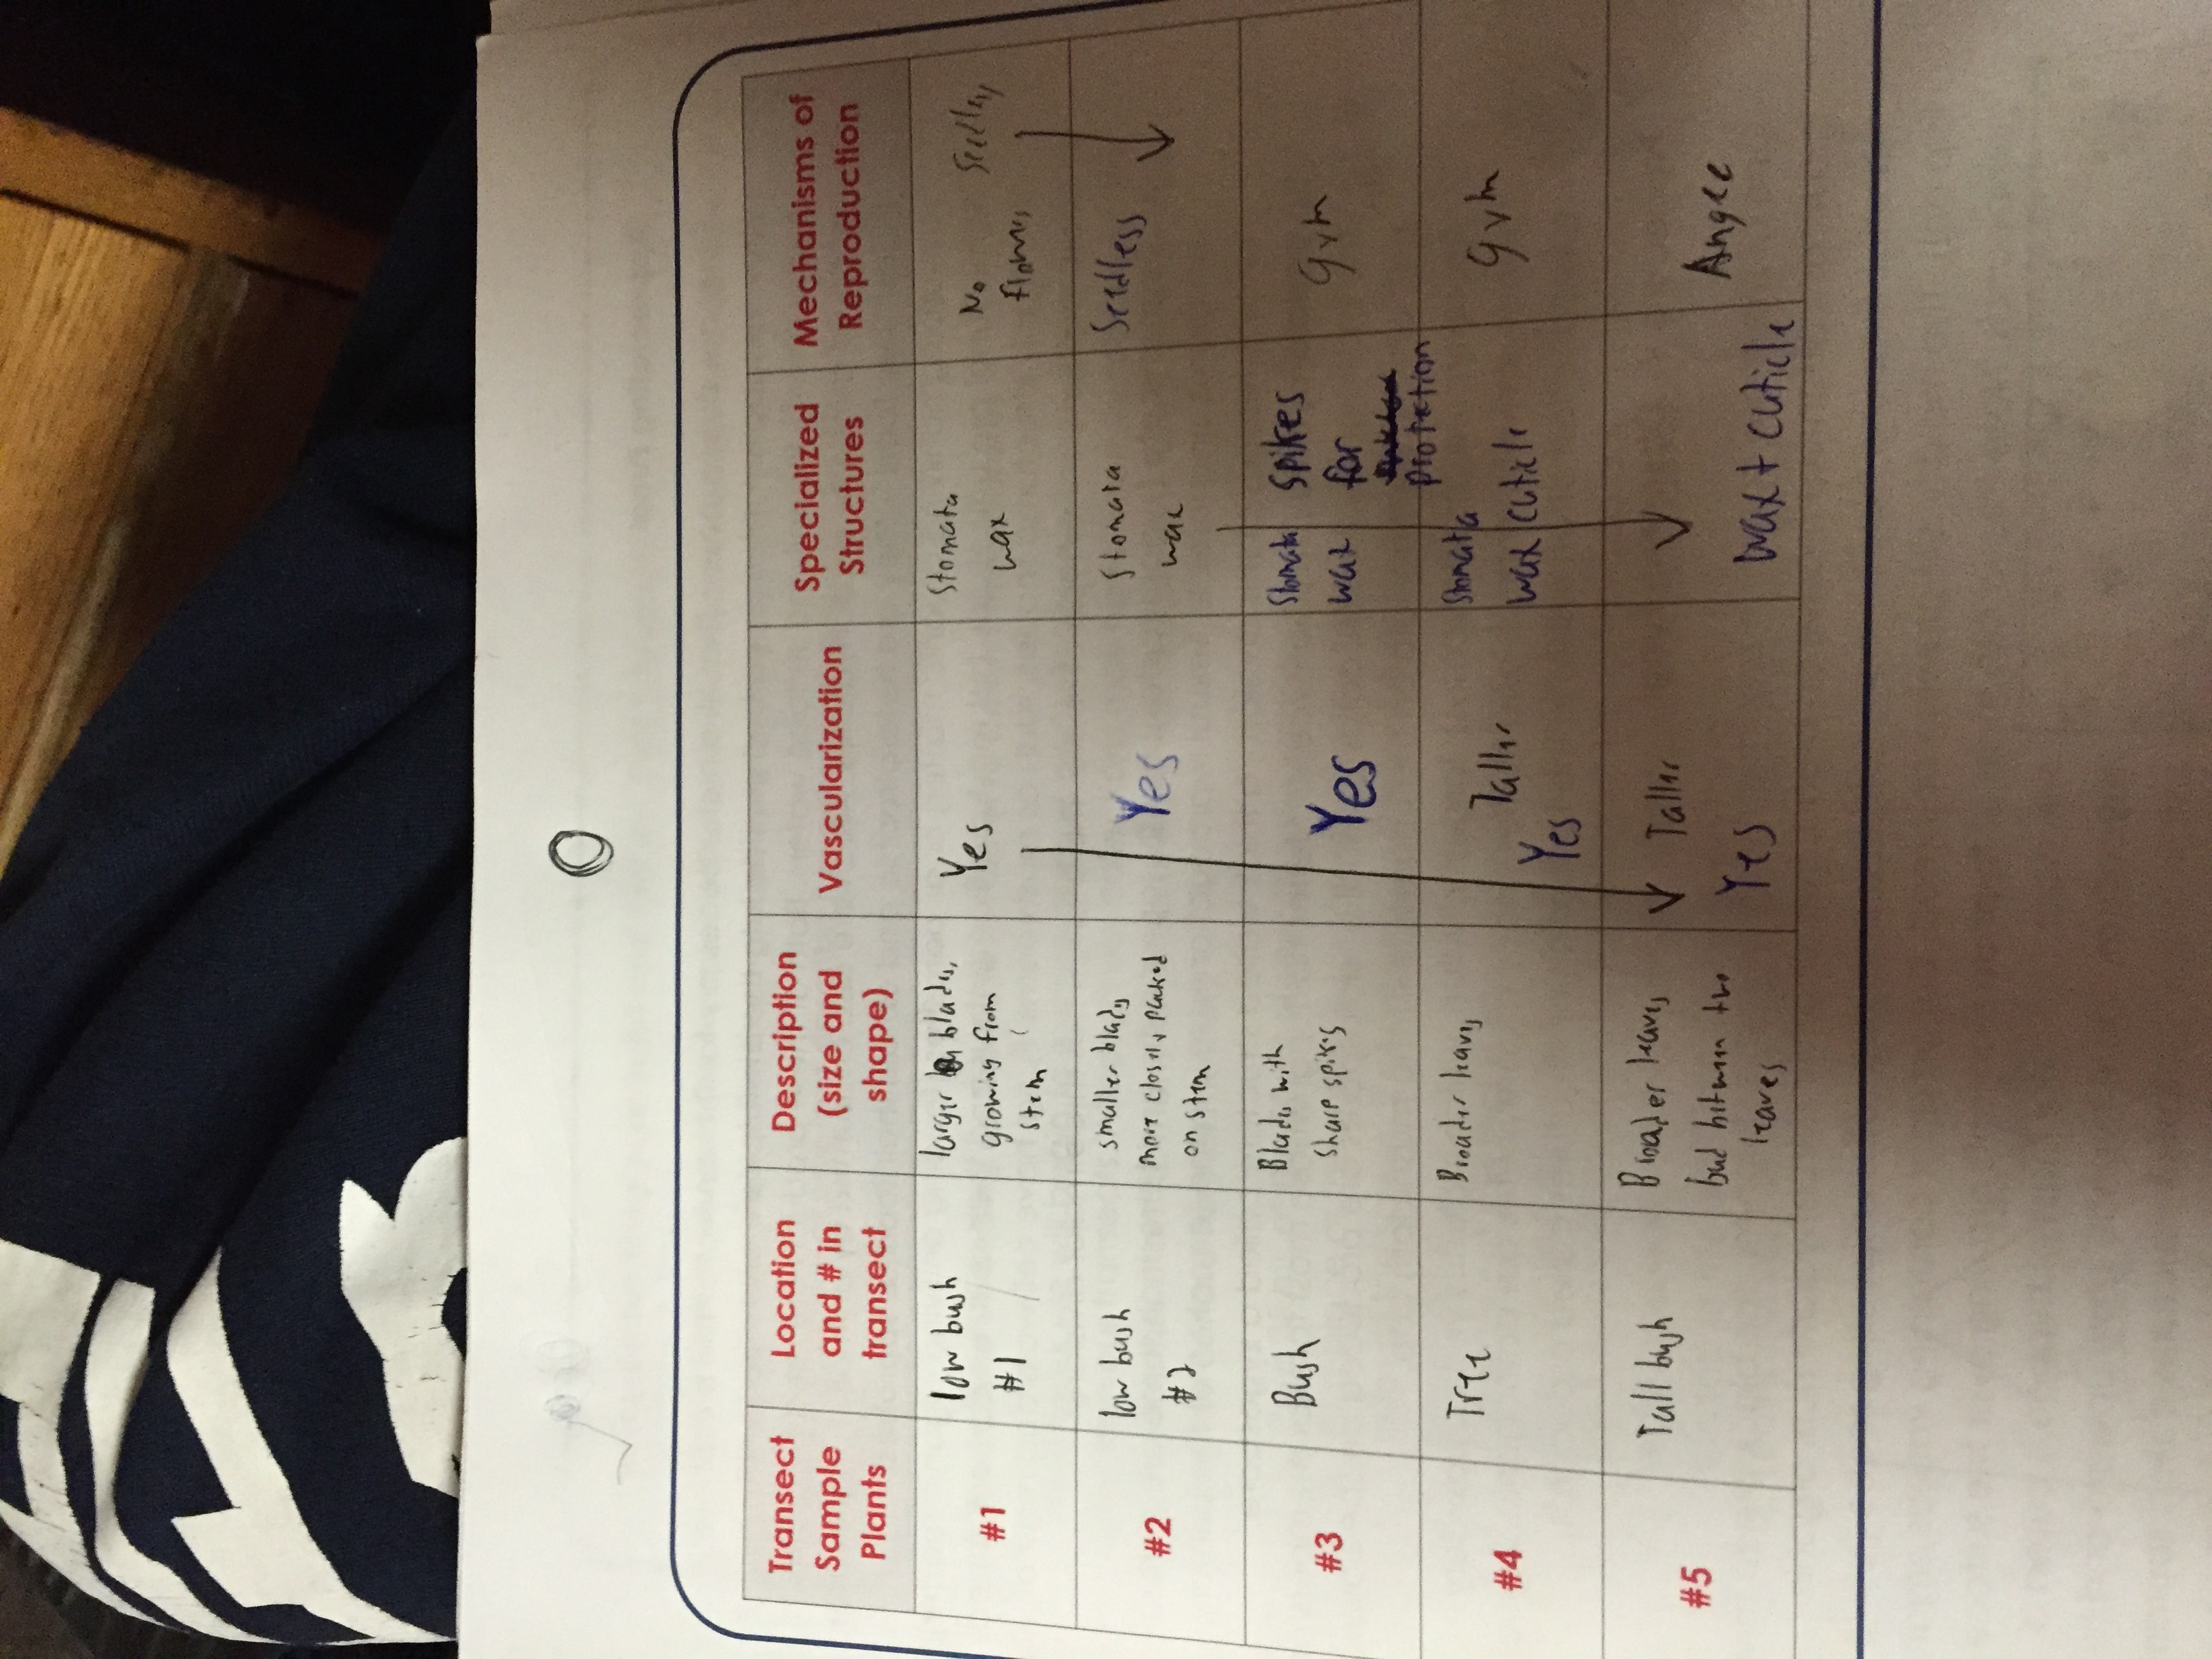 Transect
Sample
Plants
Location
and # in
transect
Description
(size and
shape)
Vascularization
Specialized
Structures
Mechanisms of
Reproduction
#1
low bush
#1
larger blades,
growing from
stem
Yes
Stomata
wax
No
flowers
#2
low bush
#2
smaller blades
more closely packed
on stem
Yes
Stomata
wax
Seedless
#3
Bush
Blades with
sharp spikes
Yes
Stomata
wax
spikes
for
protection
Gym
#4
Tree
Broader leaves
Taller
Yes
Stomata
wax
cuticle
Gym
#5
Tall bush
Broader leaves,
bud between two
leaves
Taller
Yes
wax + cuticle